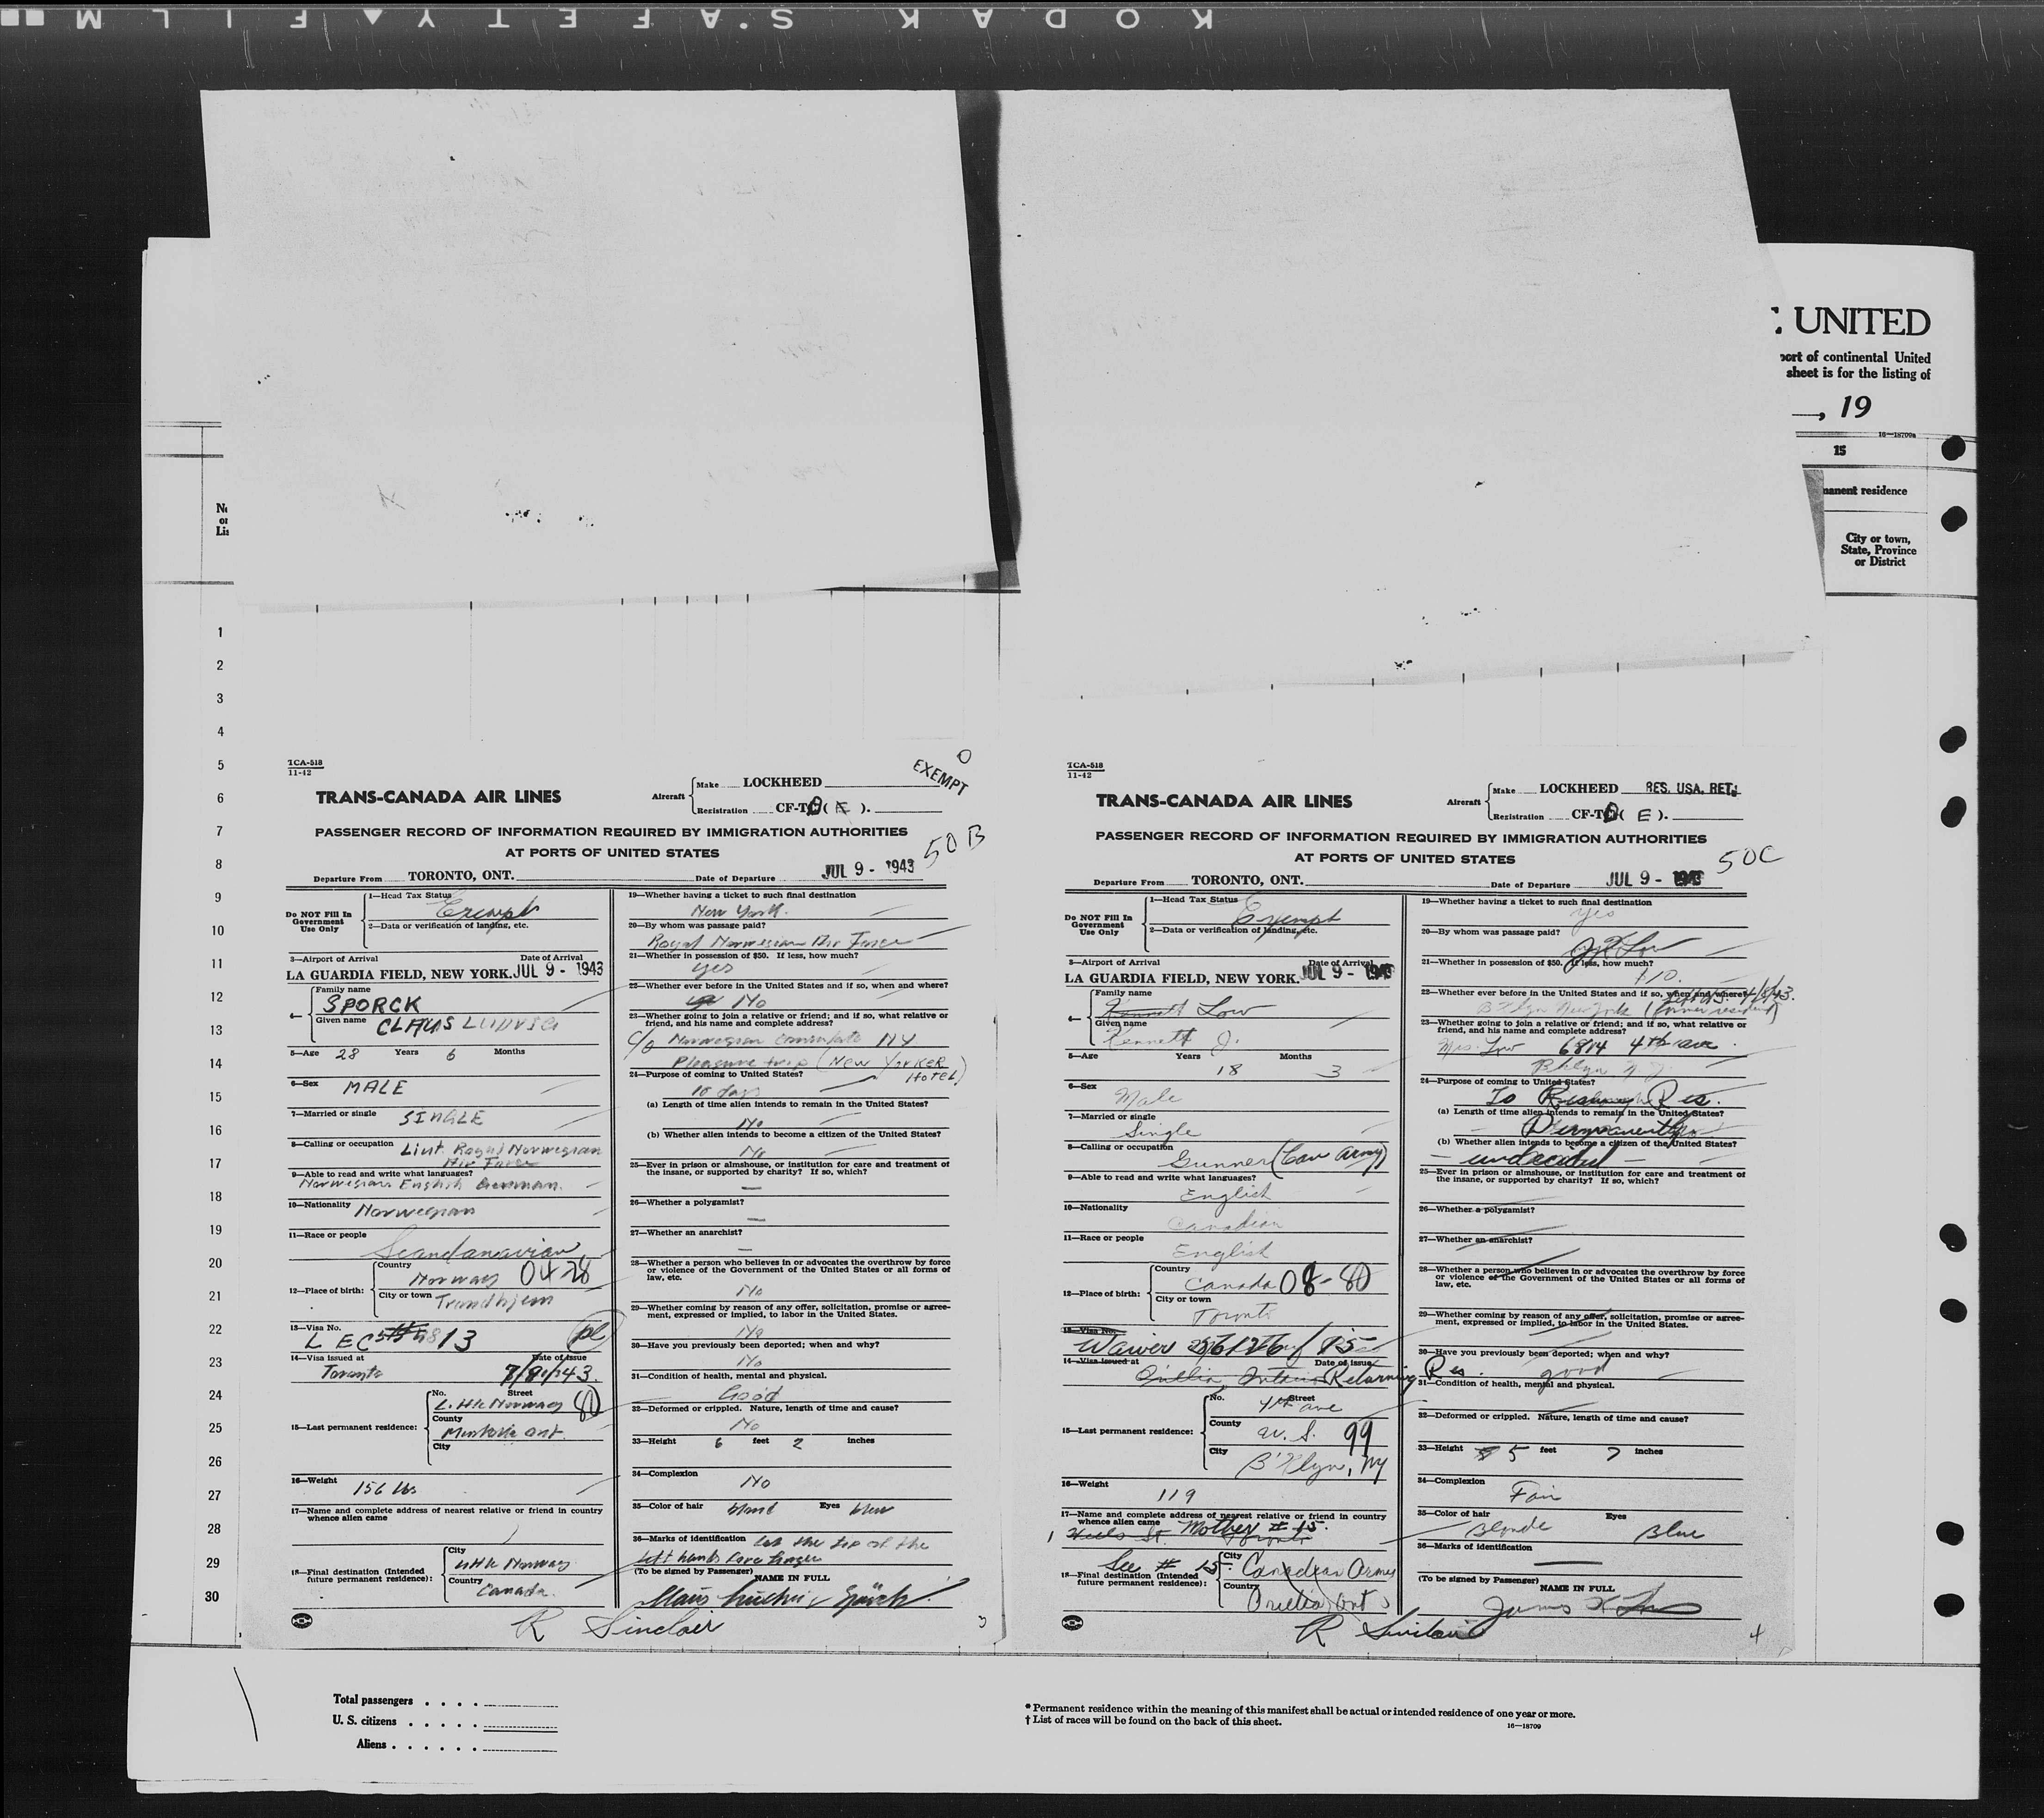 KODAK SAFETY FILM
UNITED
port of continental United
sheet is for the listing of
, 19
16—18700a
15
manent residence
City or town,
State, Province
or District
1
2
3
4
5
6
7
8
9
10
11
12
13
14
15
16
17
18
19
20
21
22
23
24
25
26
27
28
29
30
TCA-518
11-42
EXEMPT
TRANS-CANADA AIR LINES
Aircraft
Make LOCKHEED
Registration CF-T ( ).
PASSENGER RECORD OF INFORMATION REQUIRED BY IMMIGRATION AUTHORITIES
AT PORTS OF UNITED STATES
50 B
Departure From TORONTO, ONT. Date of Departure JUL 9 - 1943
Do NOT Fill In Government Use Only
1—Head Tax Status Exempt
2—Data or verification of landing, etc.
3—Airport of Arrival Date of Arrival
LA GUARDIA FIELD, NEW YORK. JUL 9 - 1943
4— Family name SPORCK
Given name CLAUS
5—Age 28 Years 6 Months
6—Sex MALE
7—Married or single SINGLE
8—Calling or occupation Liut. Royal Norwegian
Air Force
9—Able to read and write what languages?
Norwegian English German.
10—Nationality Norwegian
11—Race or people
Scandanavian
12—Place of birth: Country Norway 04-28
City or town Trondhjem
13—Visa No.
14—Visa issued at Date of issue
Toronto
15—Last permanent residence: No. Street
L. Hk Norway
County
Muskoka Ont.
City
16—Weight
156 lbs
17—Name and complete address of nearest relative or friend in country
whence alien came
18—Final destination (Intended
future permanent residence): City
Norway
Country Canada.
19—Whether having a ticket to such final destination
New York.
20—By whom was passage paid?
Royal Norwegian Air Force
21—Whether in possession of $50. If less, how much?
yes
22—Whether ever before in the United States and if so, when and where?
No
23—Whether going to join a relative or friend; and if so, what relative or
friend, and his name and complete address?
c/o Norwegian Consulate NY
Pleasure trip (NEW YORKER
HOTEL)
24—Purpose of coming to United States?
10 days
(a) Length of time alien intends to remain in the United States?
No
(b) Whether alien intends to become a citizen of the United States?
No
25—Ever in prison or almshouse, or institution for care and treatment of
the insane, or supported by charity? If so, which?
—
26—Whether a polygamist?
—
27—Whether an anarchist?
—
28—Whether a person who believes in or advocates the overthrow by force
or violence of the Government of the United States or all forms of
law, etc.
No
29—Whether coming by reason of any offer, solicitation, promise or agree-
ment, expressed or implied, to labor in the United States.
No
30—Have you previously been deported; when and why?
No
31—Condition of health, mental and physical.
Good
32—Deformed or crippled. Nature, length of time and cause?
No
33—Height 6 feet 2 inches
34—Complexion
No
35—Color of hair blond Eyes blew
36—Marks of identification the tip of the
left hands fore finger
(To be signed by Passenger)
NAME IN FULL
R Sinclair
3
TCA-518
11-42
TRANS-CANADA AIR LINES
Aircraft
Make LOCKHEED RES. USA. RET.
Registration CF-T ( E ).
PASSENGER RECORD OF INFORMATION REQUIRED BY IMMIGRATION AUTHORITIES
AT PORTS OF UNITED STATES
50C
Departure From TORONTO, ONT. Date of Departure JUL 9 - 1943
Do NOT Fill In Government Use Only
1—Head Tax Status
Exempt
2—Data or verification of landing, etc.
3—Airport of Arrival Date of Arrival
LA GUARDIA FIELD, NEW YORK. JUL 9 - 1943
4— Family name
Kennett Low
Given name
Kennett J.
5—Age Years Months
18 3
6—Sex
Male
7—Married or single
Single
8—Calling or occupation
Gunner (Can Army)
9—Able to read and write what languages?
English
10—Nationality
Canadian
11—Race or people
English
12—Place of birth: Country
Canada 08-80
City or town
Toronto
13—Visa No.
Waiver
14—Visa issued at Date of issue
Orillia, Ontario Returning Res.
15—Last permanent residence: No. Street
4th ave
County
U. S. 99
City
B'klyn, NY
16—Weight
119
17—Name and complete address of nearest relative or friend in country
whence alien came Mother # 15.
St. Toronto
See # 15
18—Final destination (Intended
future permanent residence): City
Canadian Army
Country
Orillia Ont
19—Whether having a ticket to such final destination
yes
20—By whom was passage paid?
21—Whether in possession of $50. If less, how much?
22—Whether ever before in the United States and if so, when and where?
4/8/43.
B'klyn New York (former resident)
23—Whether going to join a relative or friend; and if so, what relative or
friend, and his name and complete address?
Mrs. Low 6814 4th ave.
Bklyn N.Y.
24—Purpose of coming to United States?
To Res.
(a) Length of time alien intends to remain in the United States?
Permanently
(b) Whether alien intends to become a citizen of the United States?
— undecided —
25—Ever in prison or almshouse, or institution for care and treatment of
the insane, or supported by charity? If so, which?
26—Whether a polygamist?
27—Whether an anarchist?
28—Whether a person who believes in or advocates the overthrow by force
or violence of the Government of the United States or all forms of
law, etc.
29—Whether coming by reason of any offer, solicitation, promise or agree-
ment, expressed or implied, to labor in the United States.
30—Have you previously been deported; when and why?
good
31—Condition of health, mental and physical.
32—Deformed or crippled. Nature, length of time and cause?
33—Height 5 feet 7 inches
34—Complexion
Fair
35—Color of hair Eyes
Blonde Blue
36—Marks of identification
—
(To be signed by Passenger)
NAME IN FULL
R Sinclair
4
Total passengers . . . .
U. S. citizens . . . . .
Aliens . . . . . .
* Permanent residence within the meaning of this manifest shall be actual or intended residence of one year or more.
† List of races will be found on the back of this sheet.
16—18709